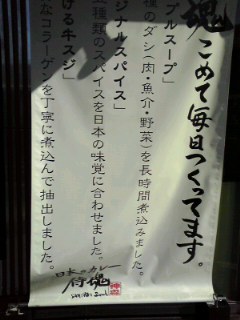 魂こめて毎日つくってます。
プルスープ」
種のダシ(肉・魚介・野菜)を長時間煮込みました。
ジナルスパイス」
種類のスパイスを日本の味覚に合わせました。
ける牛スジ」
なコラーゲンを丁寧に煮込んで抽出しました。